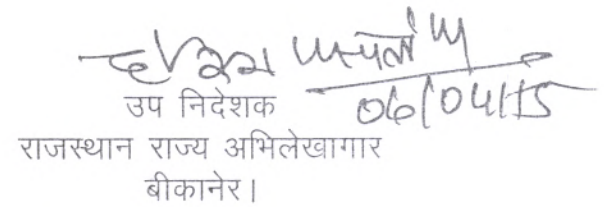 06/04/15
उप निदेशक
राजस्थान राज्य अभिलेखागार
बीकानेर।